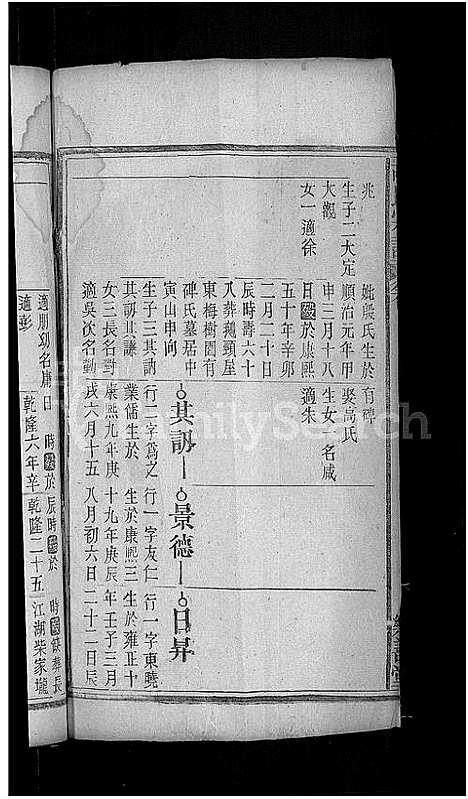 兆
生子二大定
大觀
女一適徐
妣熊氏生於
順治元年甲
申三月十八
日歿於康熙
五十年辛卯
二月二十日
辰時壽六十
八葬鵝頸屋
東梅樹園有
碑氏墓居中
寅山申向
生子三其訒
其訪其謙
女三長名對
適吳次名勤
有碑
娶高氏
生女一名咸
適朱
其訒
行二字為之
業儒生於
康熙九年庚
戌六月十五
景德
行一字友仁
生於康熙三
十九年庚辰
八月初六日
日昇
行一字東曉
生於雍正十
年壬子三月
二十二日辰
適朋幼名庸
適彭
日 時歿於
乾隆六年辛
辰時歿於
乾隆二十五
時歿葬長
江湖柴家壠
FamilySearch